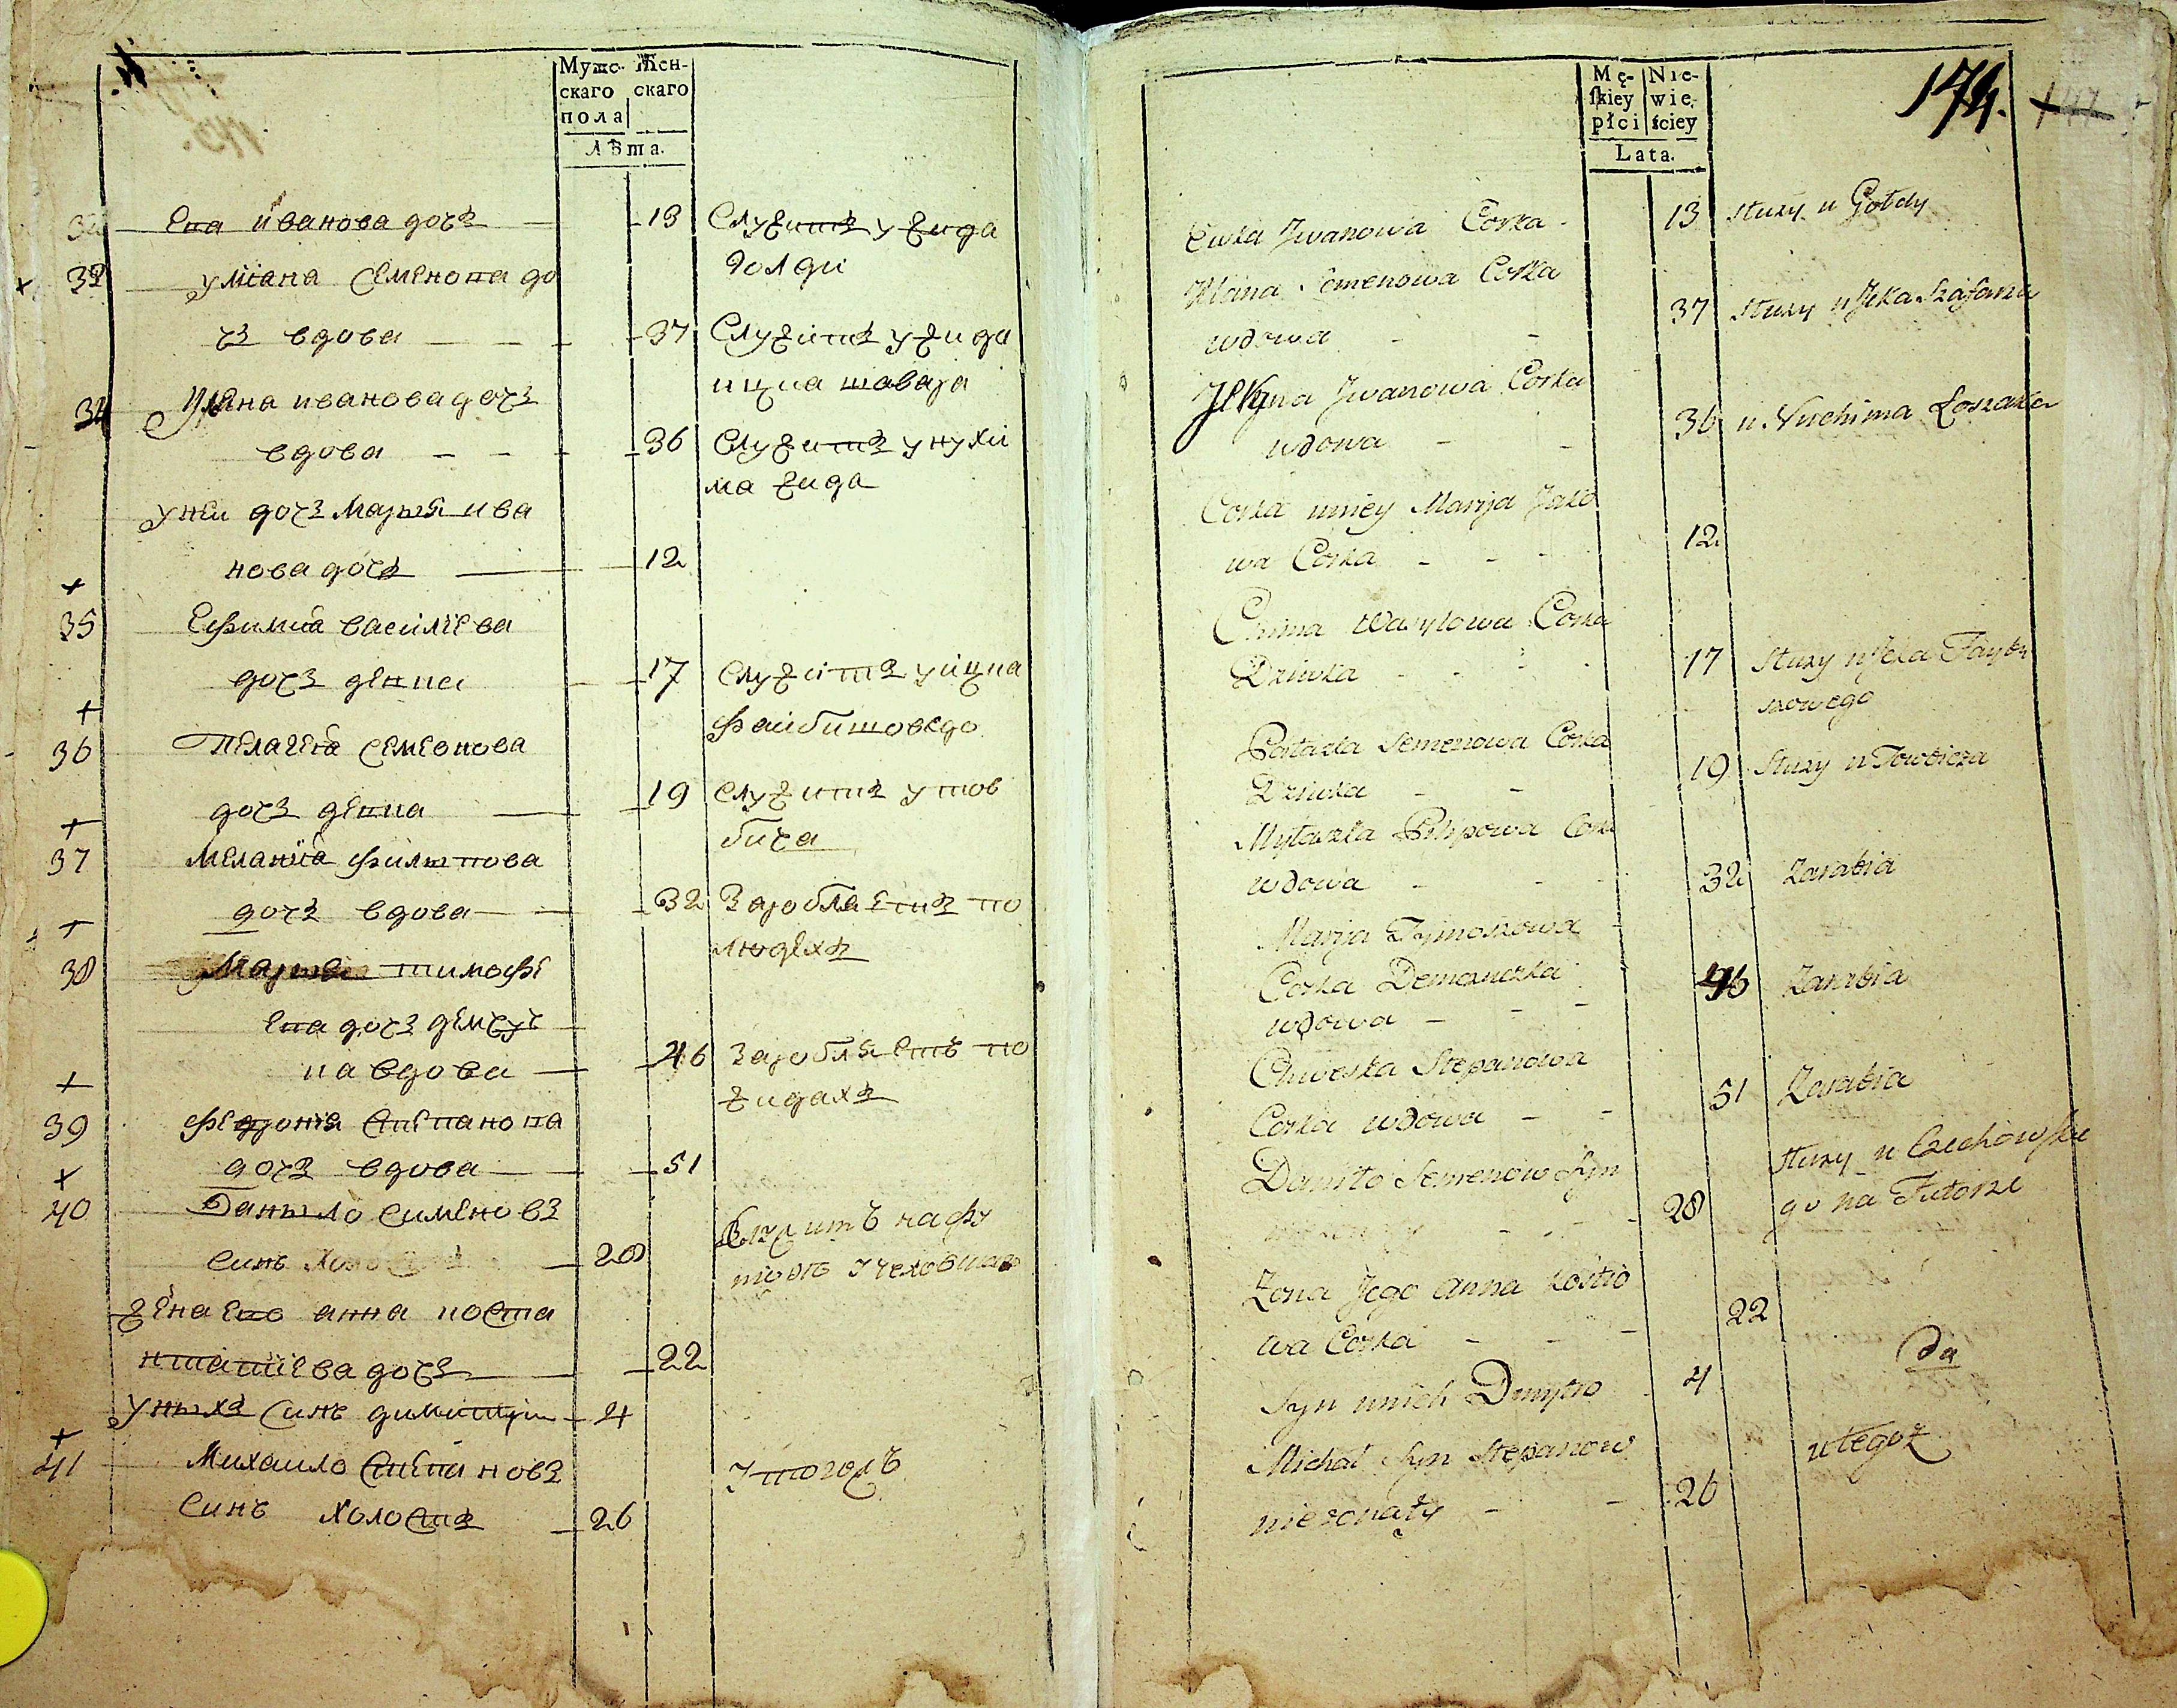 Мужс- Жен-
скаго скаго
пола
Лѣта.
32 Ева иванова дочъ 13 Служитъ у жида
Голди
33 улiана Семенова до
чъ вдова 37 Служитъ у жида
ицка шавара
34 Улiана иванова дочъ
вдова 36 Служитъ у нухи
ма жида
у ней дочъ Марья ива
нова дочъ 12
35 Ефимиа василiева
дочъ девка 17 служитъ у ицка
файбишового
36 Пелагеа семенова
дочъ девка 19 служитъ у тов
бича
37 Меланiа филипова
дочъ вдова 32 Зароблаетъ по
людехъ
38 Марья тимофе
ева дочъ демчу
ка вдова 46 Заробляетъ по
жидахъ
39 Федронiя Степанова
дочъ вдова 51
40 Данило сименовъ
синъ 28 Служитъ на фу
торе у чеховшаго
жена его анна коста
нтатiева дочъ 22
у ныхъ синъ димитри 4
41 Михаило Степановъ
синъ холостъ 26 у тогожъ
Mę- Nie-
skiey wie-
płci ściey
Lata.
174.
Ewka Jwanowa Corka 13 służy u Gołdy
Ulana Semenowa Corka
wdowa 37 służy u Jcka Szafarza
Jwanowa Corka
wdowa 36 u Nuchima Łoszaka
Corka u niey Marija Jako
wa Corka 12
Chima Wasylowa Corka
Dziwka 17 służy u Jcka Faybi
szowego
Semenowa Corka
Dziwka 19 służy u Towbicza
Filipowa Cork
wdowa 32 Zarabia
Marja Tymoszowa
Corka Demczuczka
wdowa 46 Zarabia
Chweska Stepanowa
Corka wdowa 51 Zarabia
Daniło Semenow syn 28 służy u Czechowskie
go na Futorze
Zona Jego Anna Kostio
wa Corka 22
Syn u nich Dmytro 4
Michał syn Stepanow
niezonaty 26 u tegoż